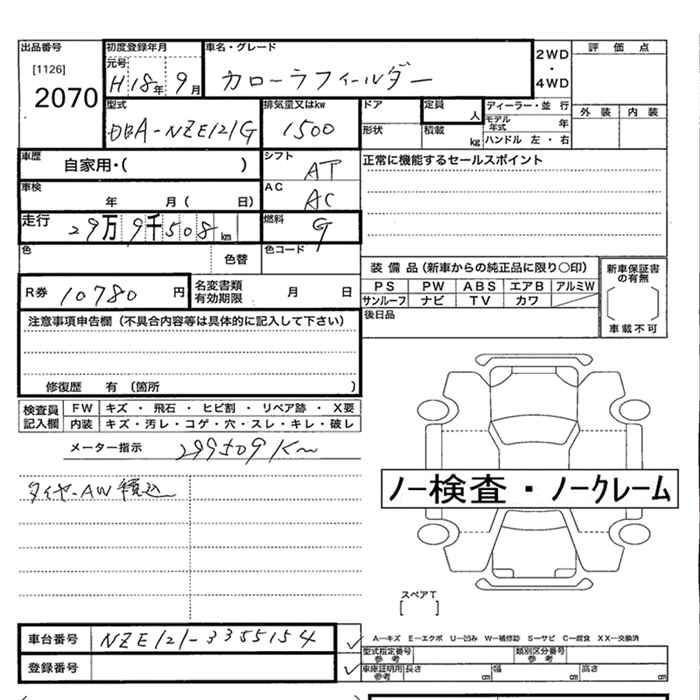 出品番号 初度登録年月 車名・グレード 2WD・4WD 評価点
[1126] 元号
2070 H18年9月 カローラフィールダー
外装 内装
型式 排気量又はkw ドア 定員 人 ディーラー・並行
DBA-NZE121G 1500 形状 積載 kg モデル年式 年
ハンドル 左・右
車歴 自家用・( ) シフト AT 正常に機能するセールスポイント
車検 年 月( 日) AC AC
走行 29万9千508km 燃料 G
色 色替 色コード
装備品(新車からの純正品に限り○印) 新車保証書の有無
R券 10780円 名変書類有効期限 月 日 PS PW ABS エアB アルミW
サンルーフ ナビ TV カワ
車載不可
注意事項申告欄(不具合内容等は具体的に記入して下さい) 後日品
修復歴 有(箇所 )
検査員記入欄 FW キズ・飛石・ヒビ割・リペア跡・X要
内装 キズ・汚レ・コゲ・穴・スレ・キレ・破レ
メーター指示 299509Km
タイヤ-AW積込
ノー検査・ノークレーム
スペアT
[ ]
車台番号 NZE121-3355154 ✓ A―キズ E―エクボ U―凹み W―補修跡 S―サビ C―腐食 XX―交換済
型式指定番号 参考 類別区分番号 参考
登録番号 ✓ 車庫証明用 参考 長さ cm 幅 cm 高さ cm